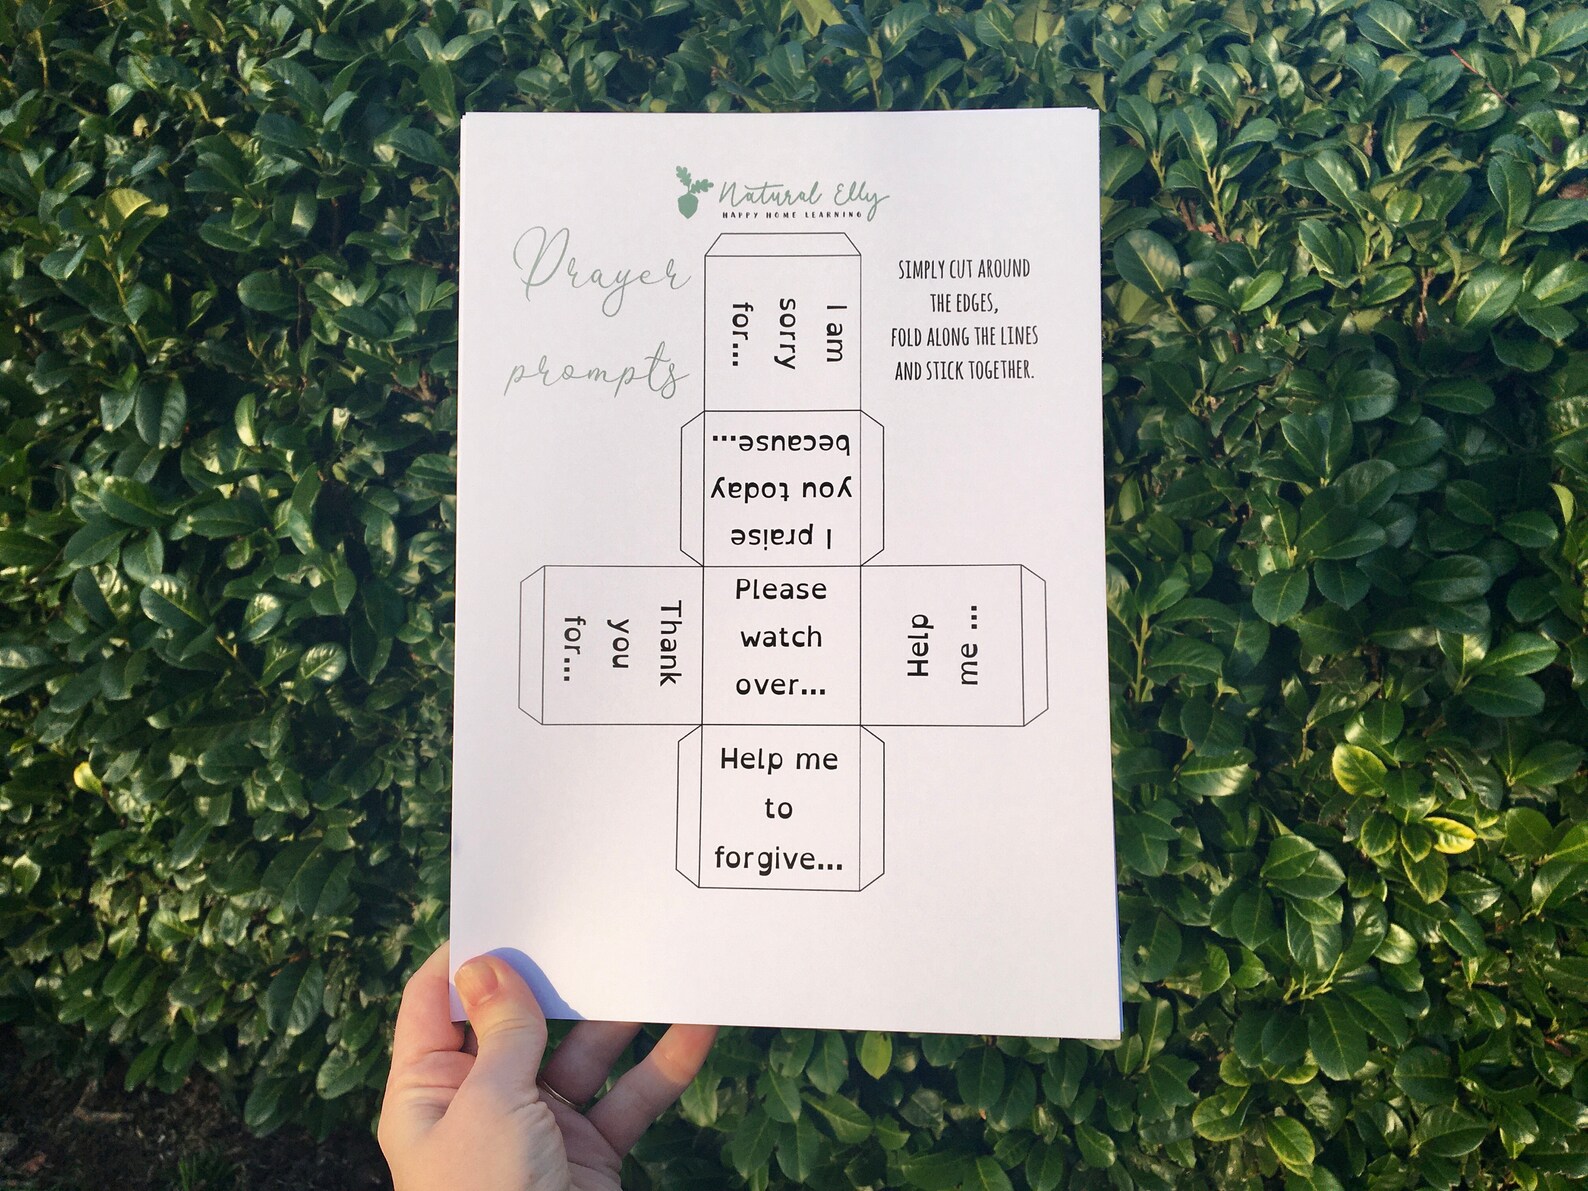 Natural Elly
HAPPY HOME LEARNING
Prayer
prompts
SIMPLY CUT AROUND
THE EDGES,
FOLD ALONG THE LINES
AND STICK TOGETHER.
I am
sorry
for...
I praise
you today
because...
Thank
you
for...
Please
watch
over...
Help
me ...
Help me
to
forgive...